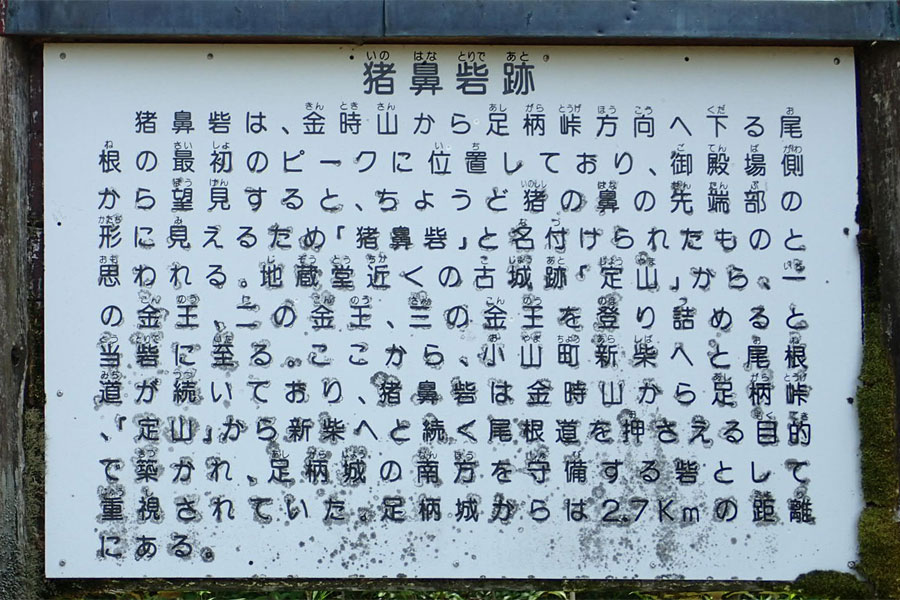 猪鼻砦跡
猪鼻砦は、金時山から足柄峠方向へ下る尾
根の最初のピークに位置しており、御殿場側
から望見すると、ちょうど猪の鼻の先端部の
形に見えるため「猪鼻砦」と名付けられたものと
思われる。地蔵堂近くの古城跡「定山」から、一
の金王、二の金王、三の金王を登り詰めると
当砦に至る。ここから、小山町新柴へと尾根
道が続いており、猪鼻砦は金時山から足柄峠
、「定山」から新柴へと続く尾根道を押さえる目的
で築かれ、足柄城の南方を守備する砦として
重視されていた。足柄城からは2.7Kmの距離
にある。